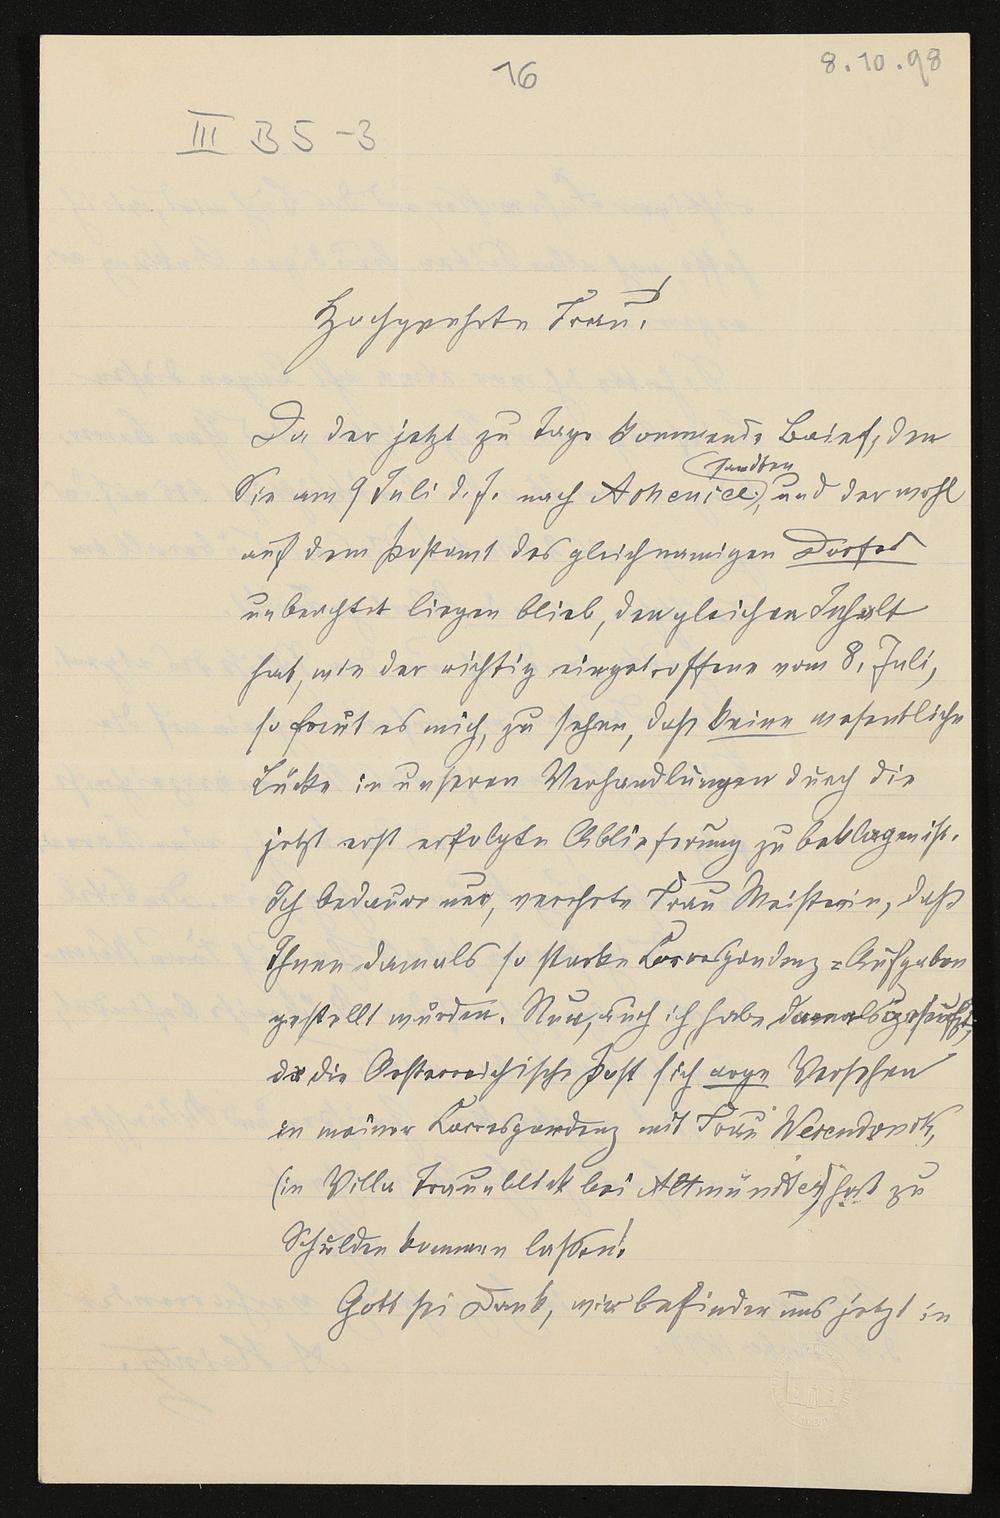 16
8.10.98
III B 5 - 3
Hochgeehrte Frau!
Da der jetzt zu Tage kommende Brief, den
sandten
Sie am 9 Juli d. J. nach, und der wohl
auf dem Postamt des gleichnamigen Dorfes
unbeachtet liegen blieb, den gleichen Inhalt
hat, wie der richtig eingetroffene vom 8. Juli,
so freut es mich, zu sehen, daß keine wesentliche
Lücke in unseren Verhandlungen durch die
jetzt erst erfolgte Ablieferung zu beklagen ist.
Ich bedaure nur, verehrte Frau Meisterin, daß
Ihnen damals so starke Correspondenz-Aufgaben
gestellt wurden. Nun, auch ich habe damals geseufzt,
da die Oesterreichische Post sich arge Versehen
in meiner Correspondenz mit Frau Wesendonck,
(in Villa Traunblick bei Altmünster) hat zu
Schulden kommen lassen!
Gott sei Dank, wir befinden uns jetzt in